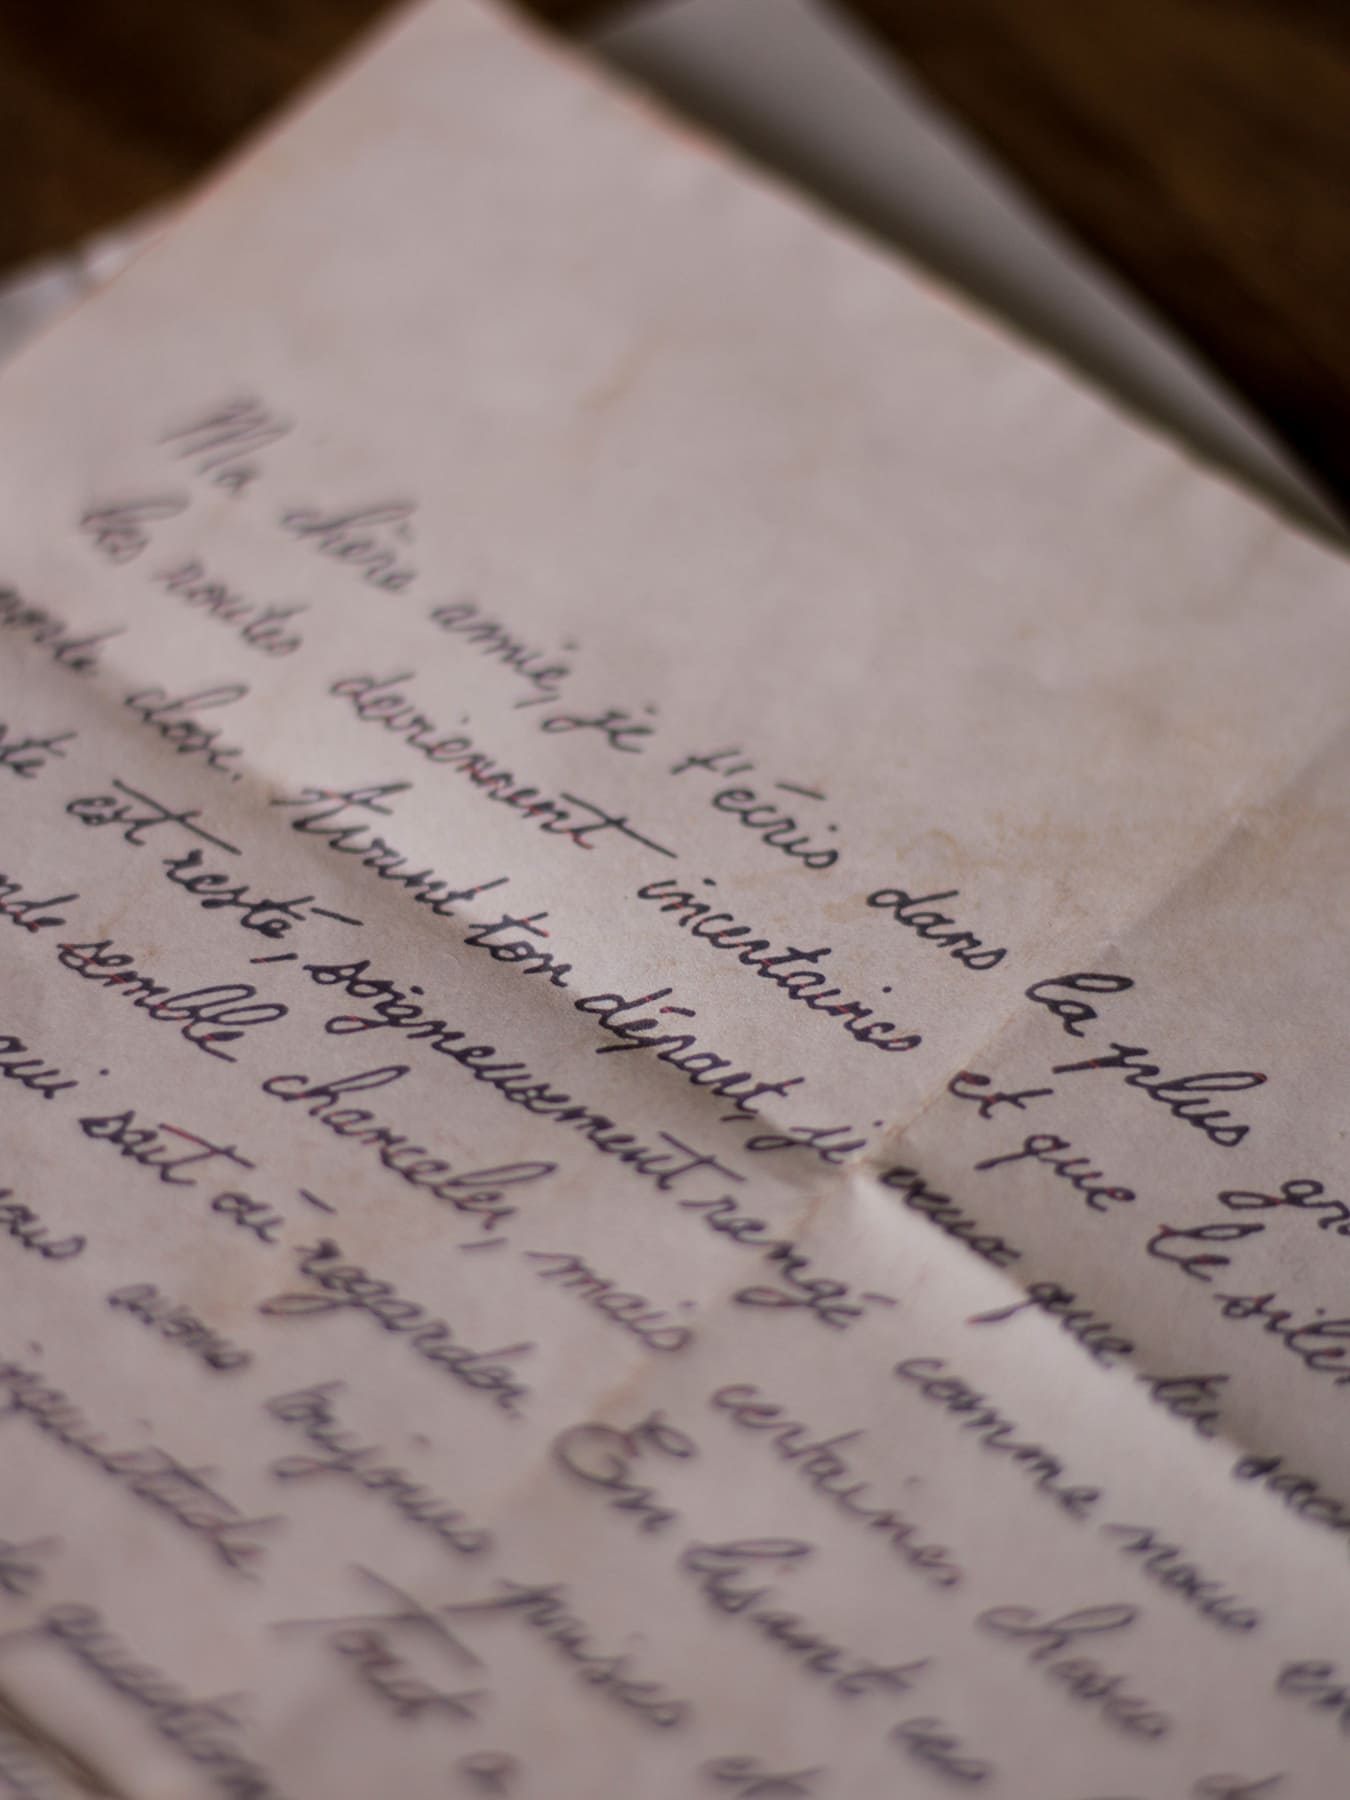 Ma chère amie, je t'écris dans la plus gr
les routes deviennent incertaines et que le silen
porte close. Avant ton départ, je veux que tu sach
est resté, soigneusement rangé comme nous en
nde semble chanceler, mais certaines choses d
qui sait où regarder. En lisant ces
ous avons toujours prises et
inquiétude Tout a
de question